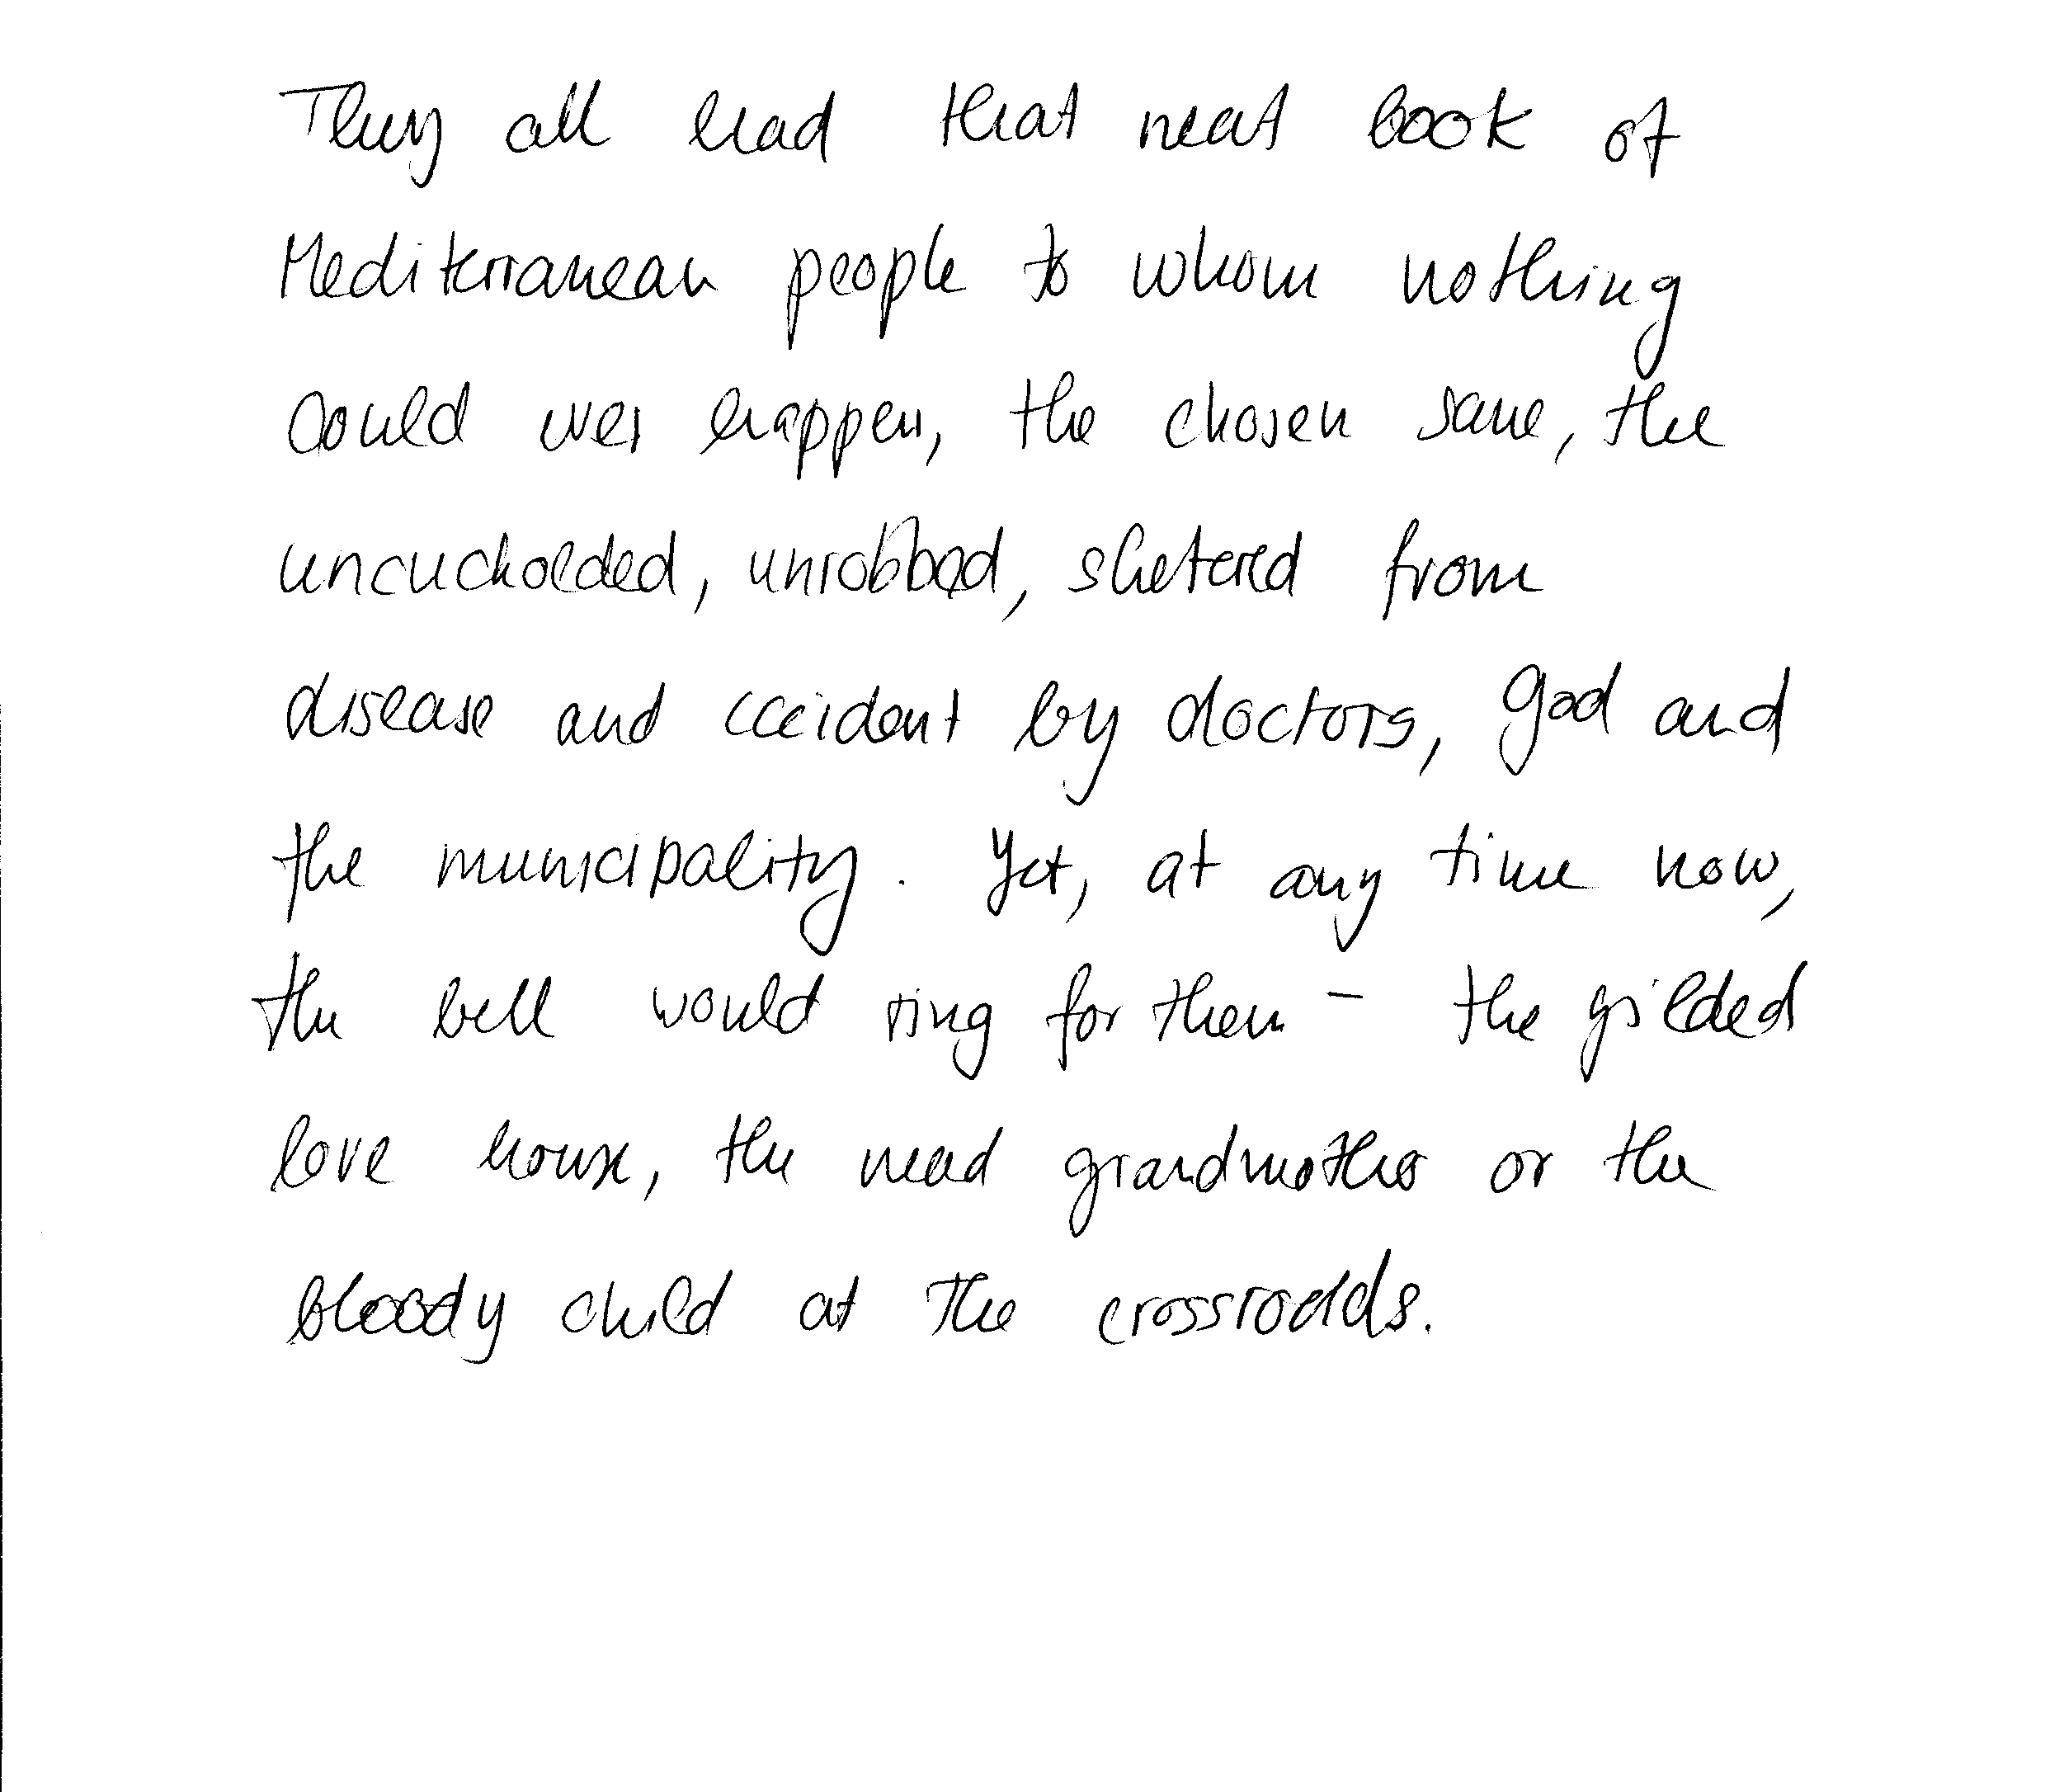 They all had that neat book of
Mediterranean people to whom nothing
could ever happen, the chosen sane, the
uncuckolded, unrobbed, shetered from
disease and ccident by doctors, god and
the municipality. Yet, at any time now,
the bell would ring for them – the gilded
love house, the mead grandmother or the
bloody child at the crossroads.